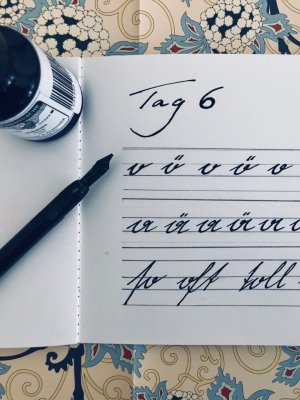 Tag 6
o ö o ö o
a ä a ä a
so oft toll